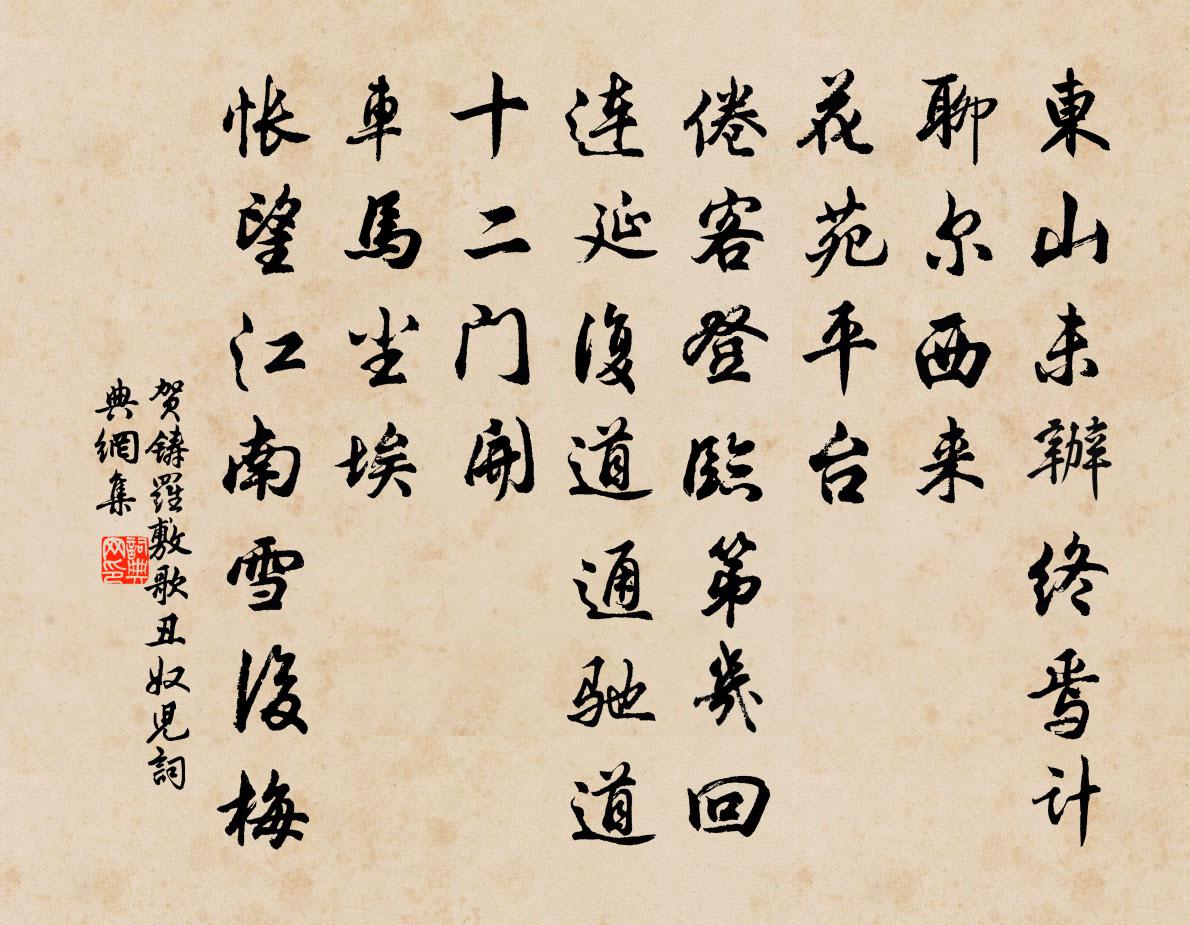 東山未辦终焉计
聊尔西来
花苑平台
倦客登臨第幾回
連延復道通驰道
十二门開
車馬尘埃
怅望江南雪後梅
贺鑄羅敷歌丑奴兒詞
典網集
詞典
网印